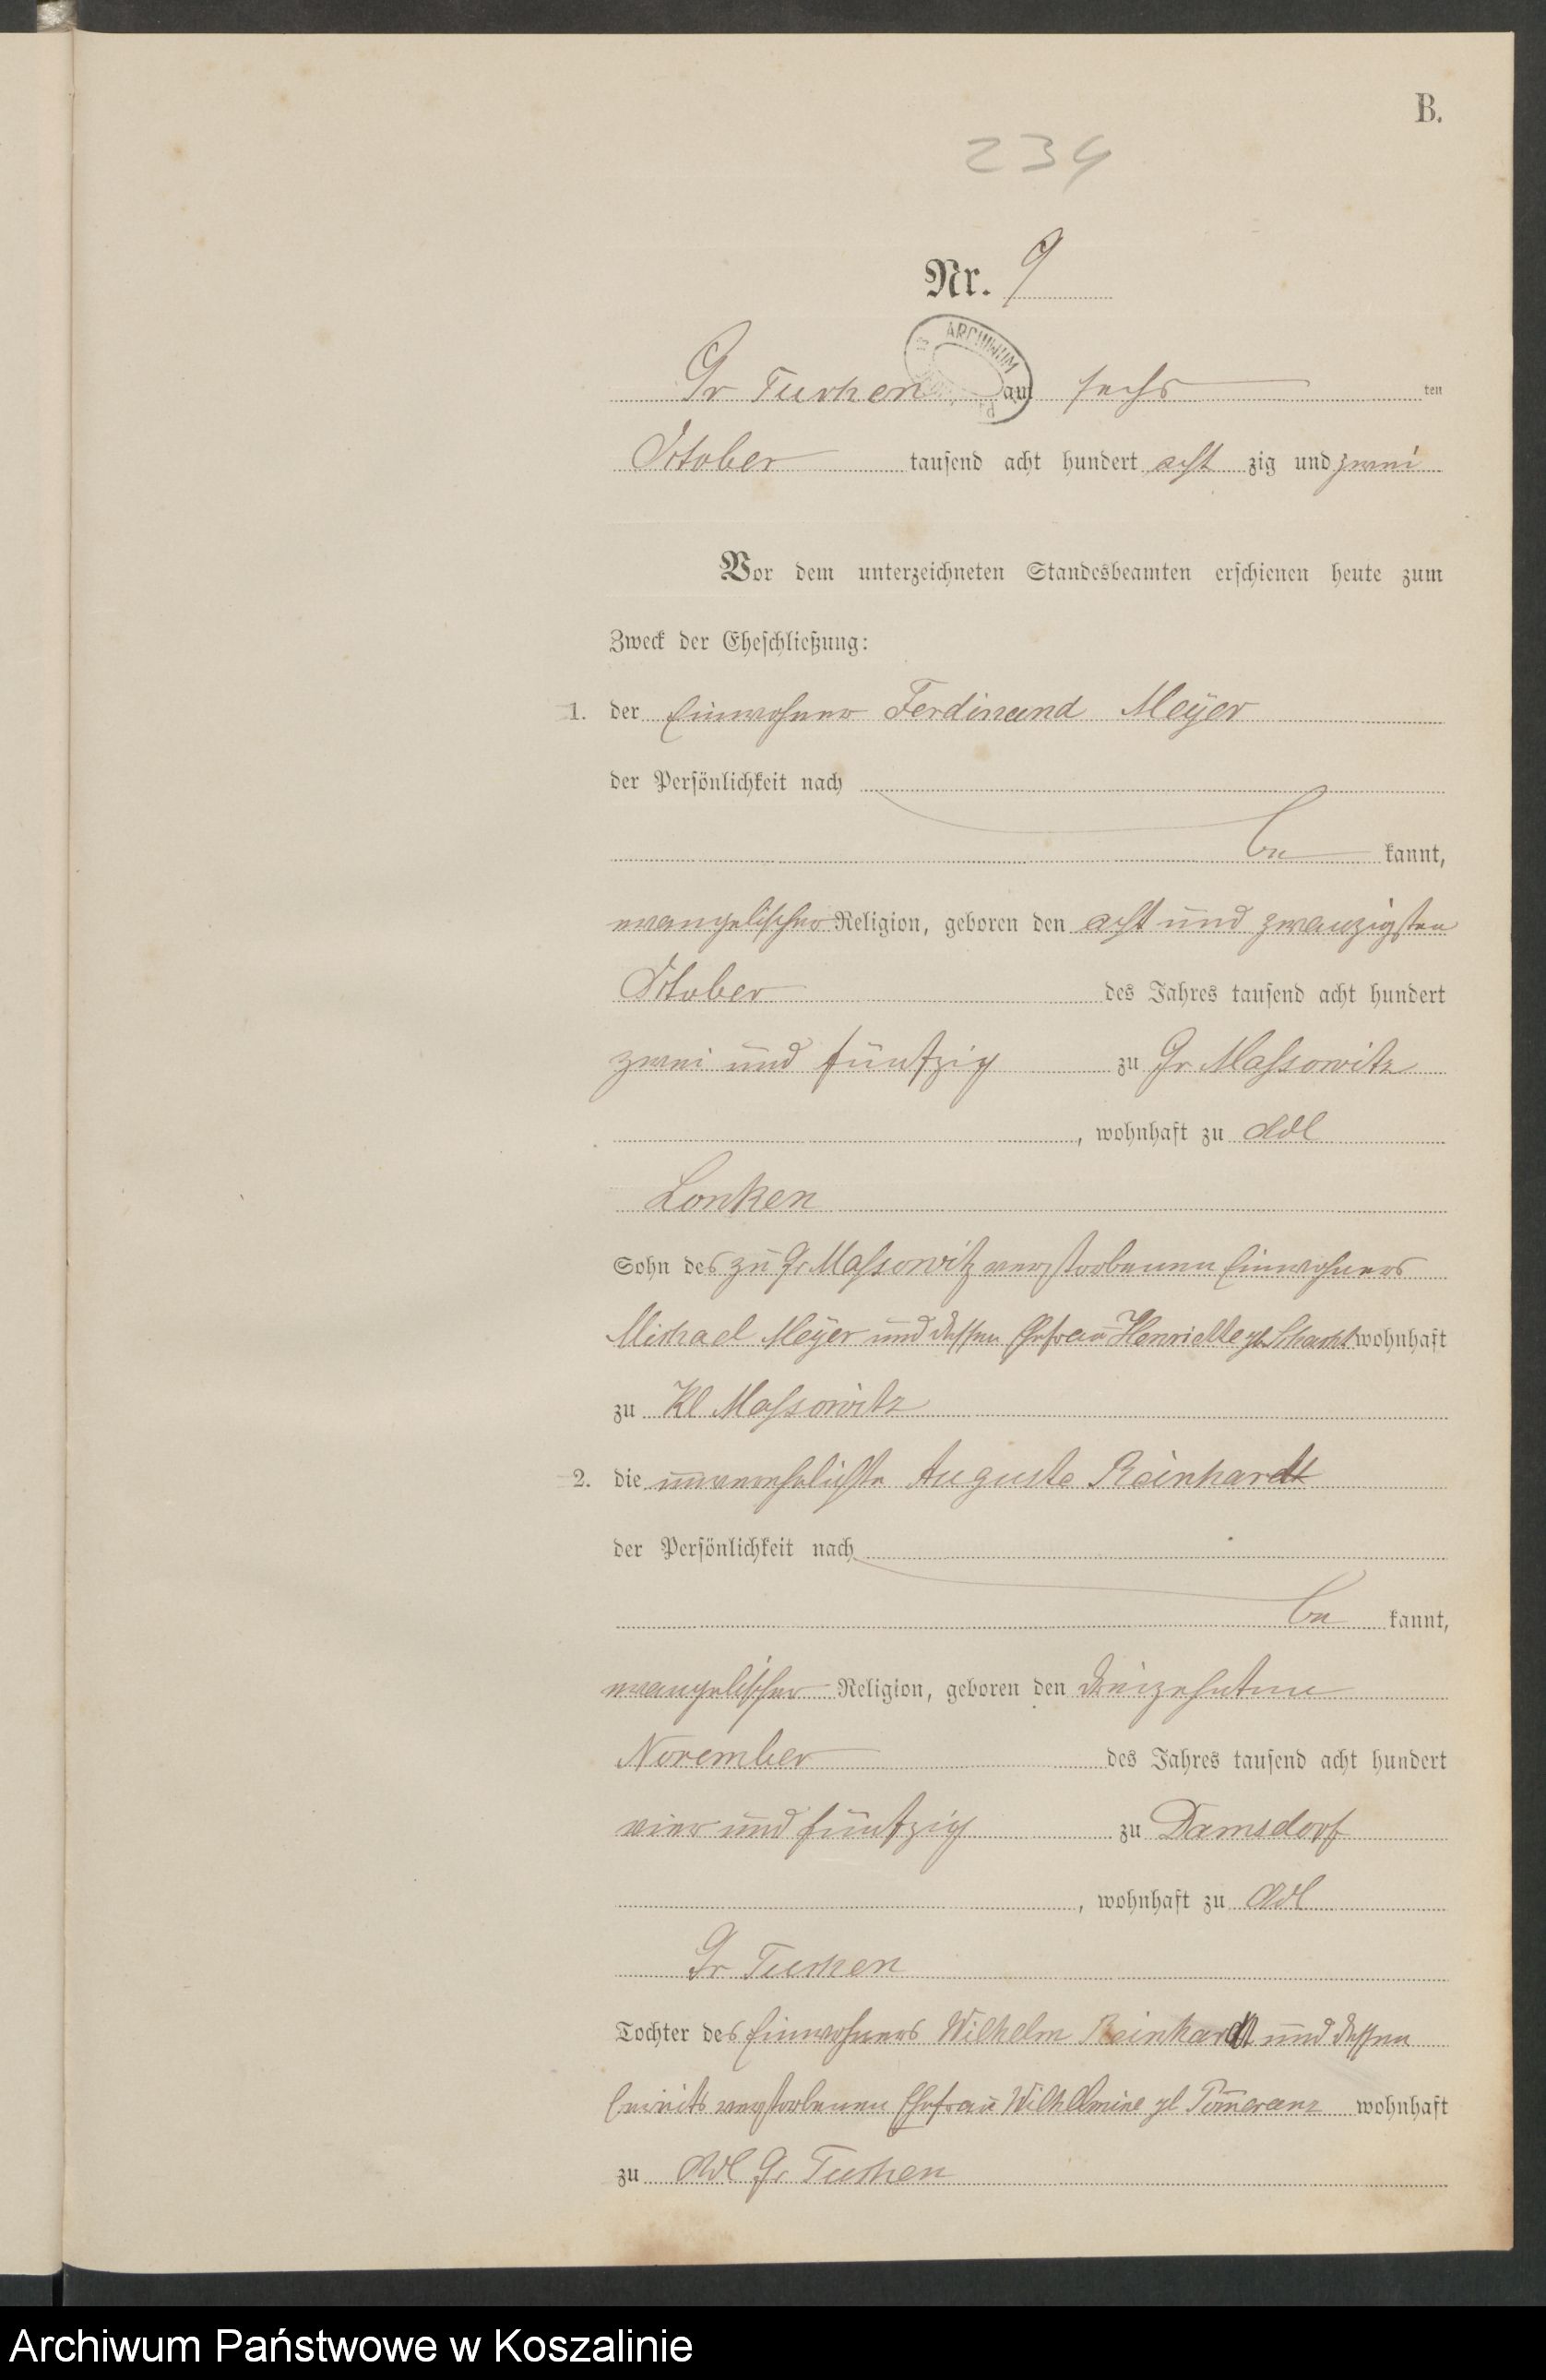 B.
234
Nr. 9
ARCHIWUM
Gr Tuchen am sechs ten
October tausend acht hundert acht zig und zwei
Vor dem unterzeichneten Standesbeamten erschienen heute zum
Zweck der Eheschließung:
1. der Einwohner Ferdinand Meÿer
der Persönlichkeit nach
be kannt,
evangelischer Religion, geboren den acht und zwanzigsten
October des Jahres tausend acht hundert
zwei und fünfzig zu Gr Massowitz
, wohnhaft zu Adl
Lonken
Sohn des zu Gr Massowitz verstorbenen Einwohners
Michael Meÿer und dessen Ehefrau Henriette gb Schacht wohnhaft
zu Kl Massowitz
2. die unverehelichte Auguste Reinhardt
der Persönlichkeit nach
be kannt,
evangelischer Religion, geboren den dreizehnten
November des Jahres tausend acht hundert
vier und fünfzig zu Damsdorf
, wohnhaft zu Adl
Gr Tuchen
Tochter des Einwohners Wilhelm Reinhardt und dessen
bereits verstorbenen Ehefrau Wilhelmine gb Pomeranz wohnhaft
zu Adl Gr Tuchen
Archiwum Państwowe w Koszalinie